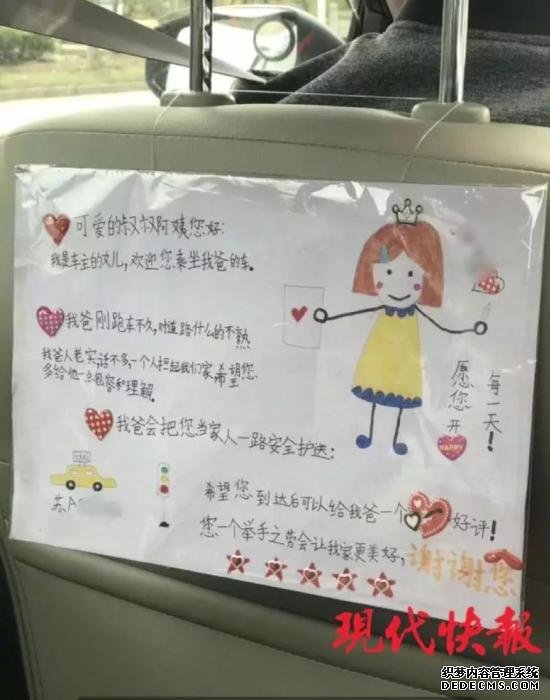 可爱的叔叔阿姨您好:
我是车主的女儿,欢迎您乘坐我爸的车.
我爸刚跑车不久,对道路什么的不熟
我爸人老实,话不多,一个人担起我们家希望您
多给他一点包容和理解.
我爸会把您当家人一路安全护送:
希望您到达后可以给我爸一个好评!
您一个举手之劳会让我家更美好,谢谢您
愿您开
HAPPY
每一天!
TAXI
苏A
现代快报
织梦内容管理系统
DEDECMS.COM